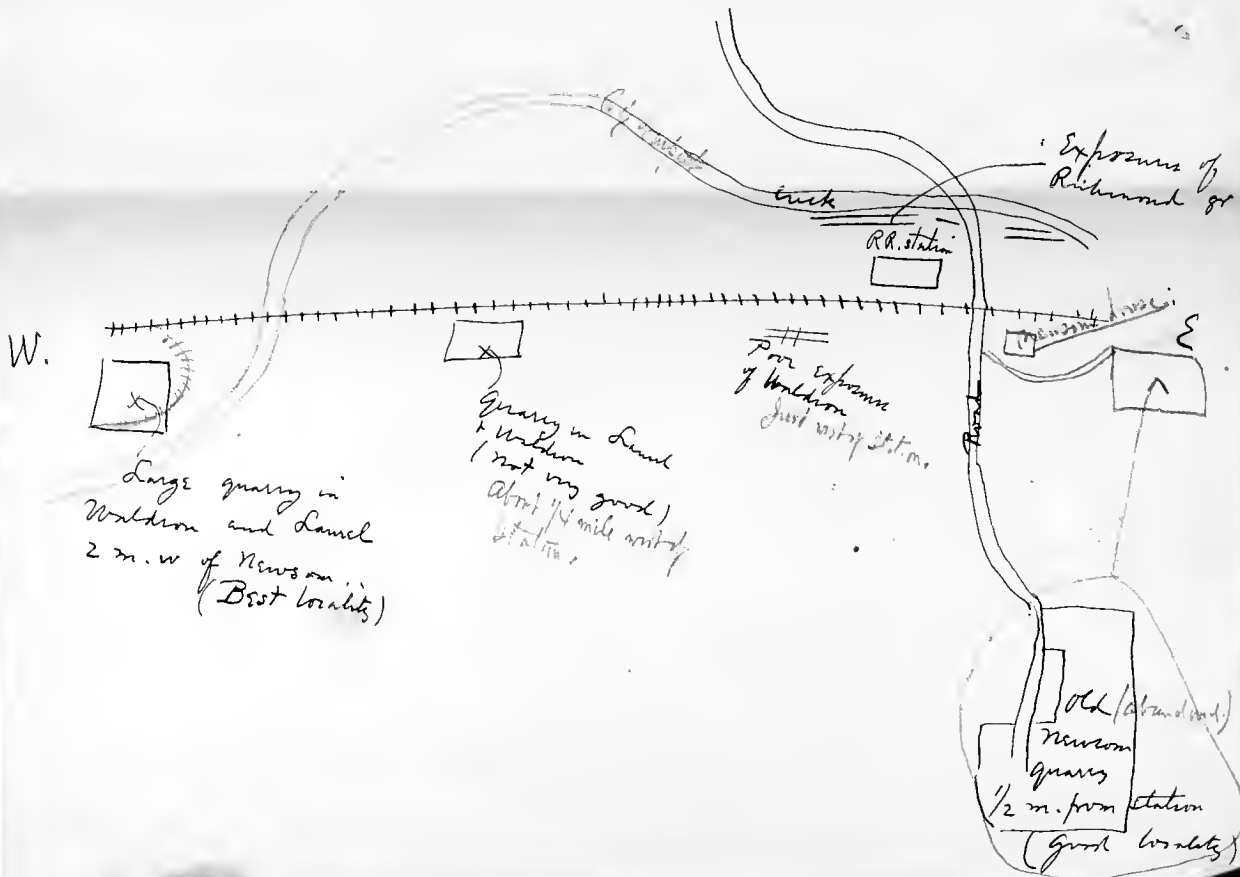 Exposures of
Richmond gr
creek
RR. station
W.
E
Newsom house.
Poor exposure
of Waldron
Just west of station.
Road
Quarry in Laurel
+ Waldron
(not very good)
About 1/4 mile west of
station.
Large quarry in
Waldron and Laurel
2 m. w of Newsom..
(Best locality)
Old (abandoned.)
Newsom
quarry
1/2 m. from station
(good locality)